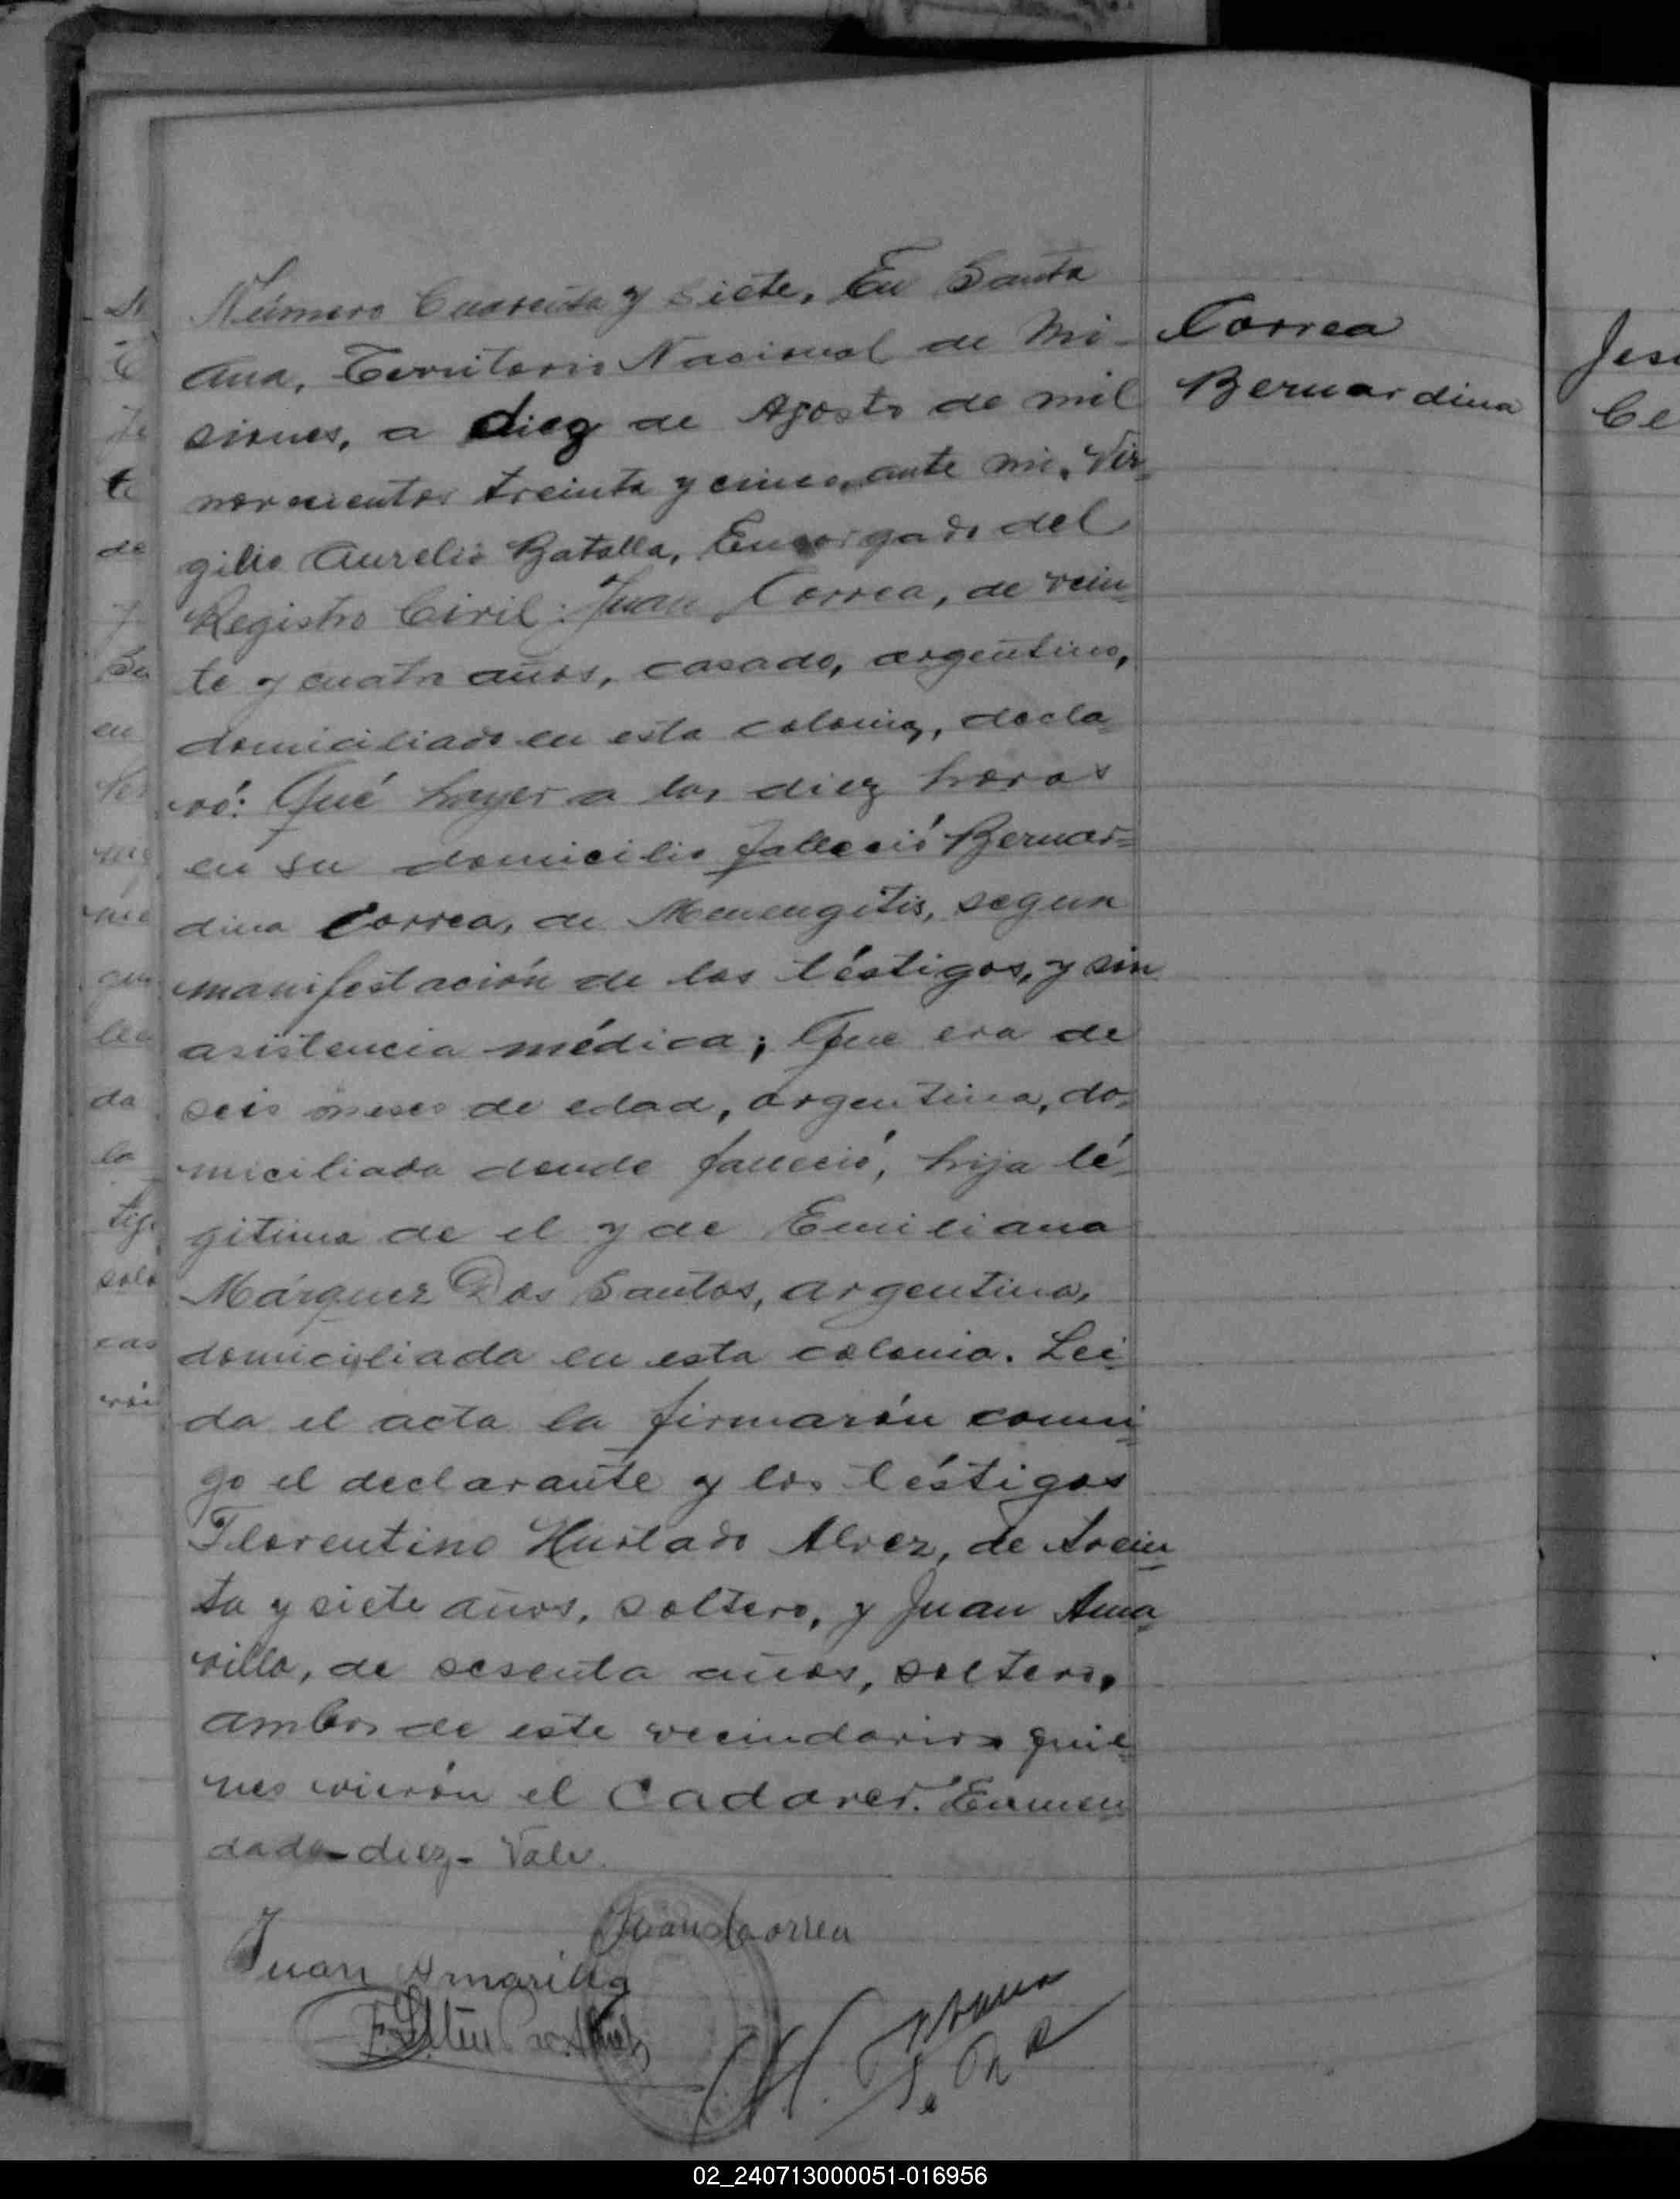 Número Cuarenta y siete, En Santa
Ana, Territorio Nacional de Mi-
siones, a diez de Agosto de mil
novecientos treinta y cinco, ante mi, Vir-
gilio Aurelio Batalla, Encargado del
Registro Civil: Juan Correa, de vein-
te y cuatro años, casado, argentino,
domiciliado en esta colonia, decla-
ró: Qué hayer a las diez horas
en su domicilio falleció Bernar=
dina Correa, de Menengitis, segun
manifestación de los téstigos, y sin
asistencia médica; Que era de
seis meses de edad, argentina, do-
miciliada donde falleció, hija lé-
gitima de el y de Emiliana
Márquez Dos Santos, argentina,
domiciliada en esta colonia. Lei-
da el acta la firmarón conmi-
go el declarante y los téstigos
Florentino Hurtado Alvez, de trein-
ta y siete años, soltero, y Juan Ama-
rilla, de sesenta años, soltero,
ambos de este vecindario quie-
nes vierón el Cadaver. Enmen-
dado-diez- Vale.
Correa
Bernardina
Juan Correa
Juan Amarilla
02_240713000051-016956